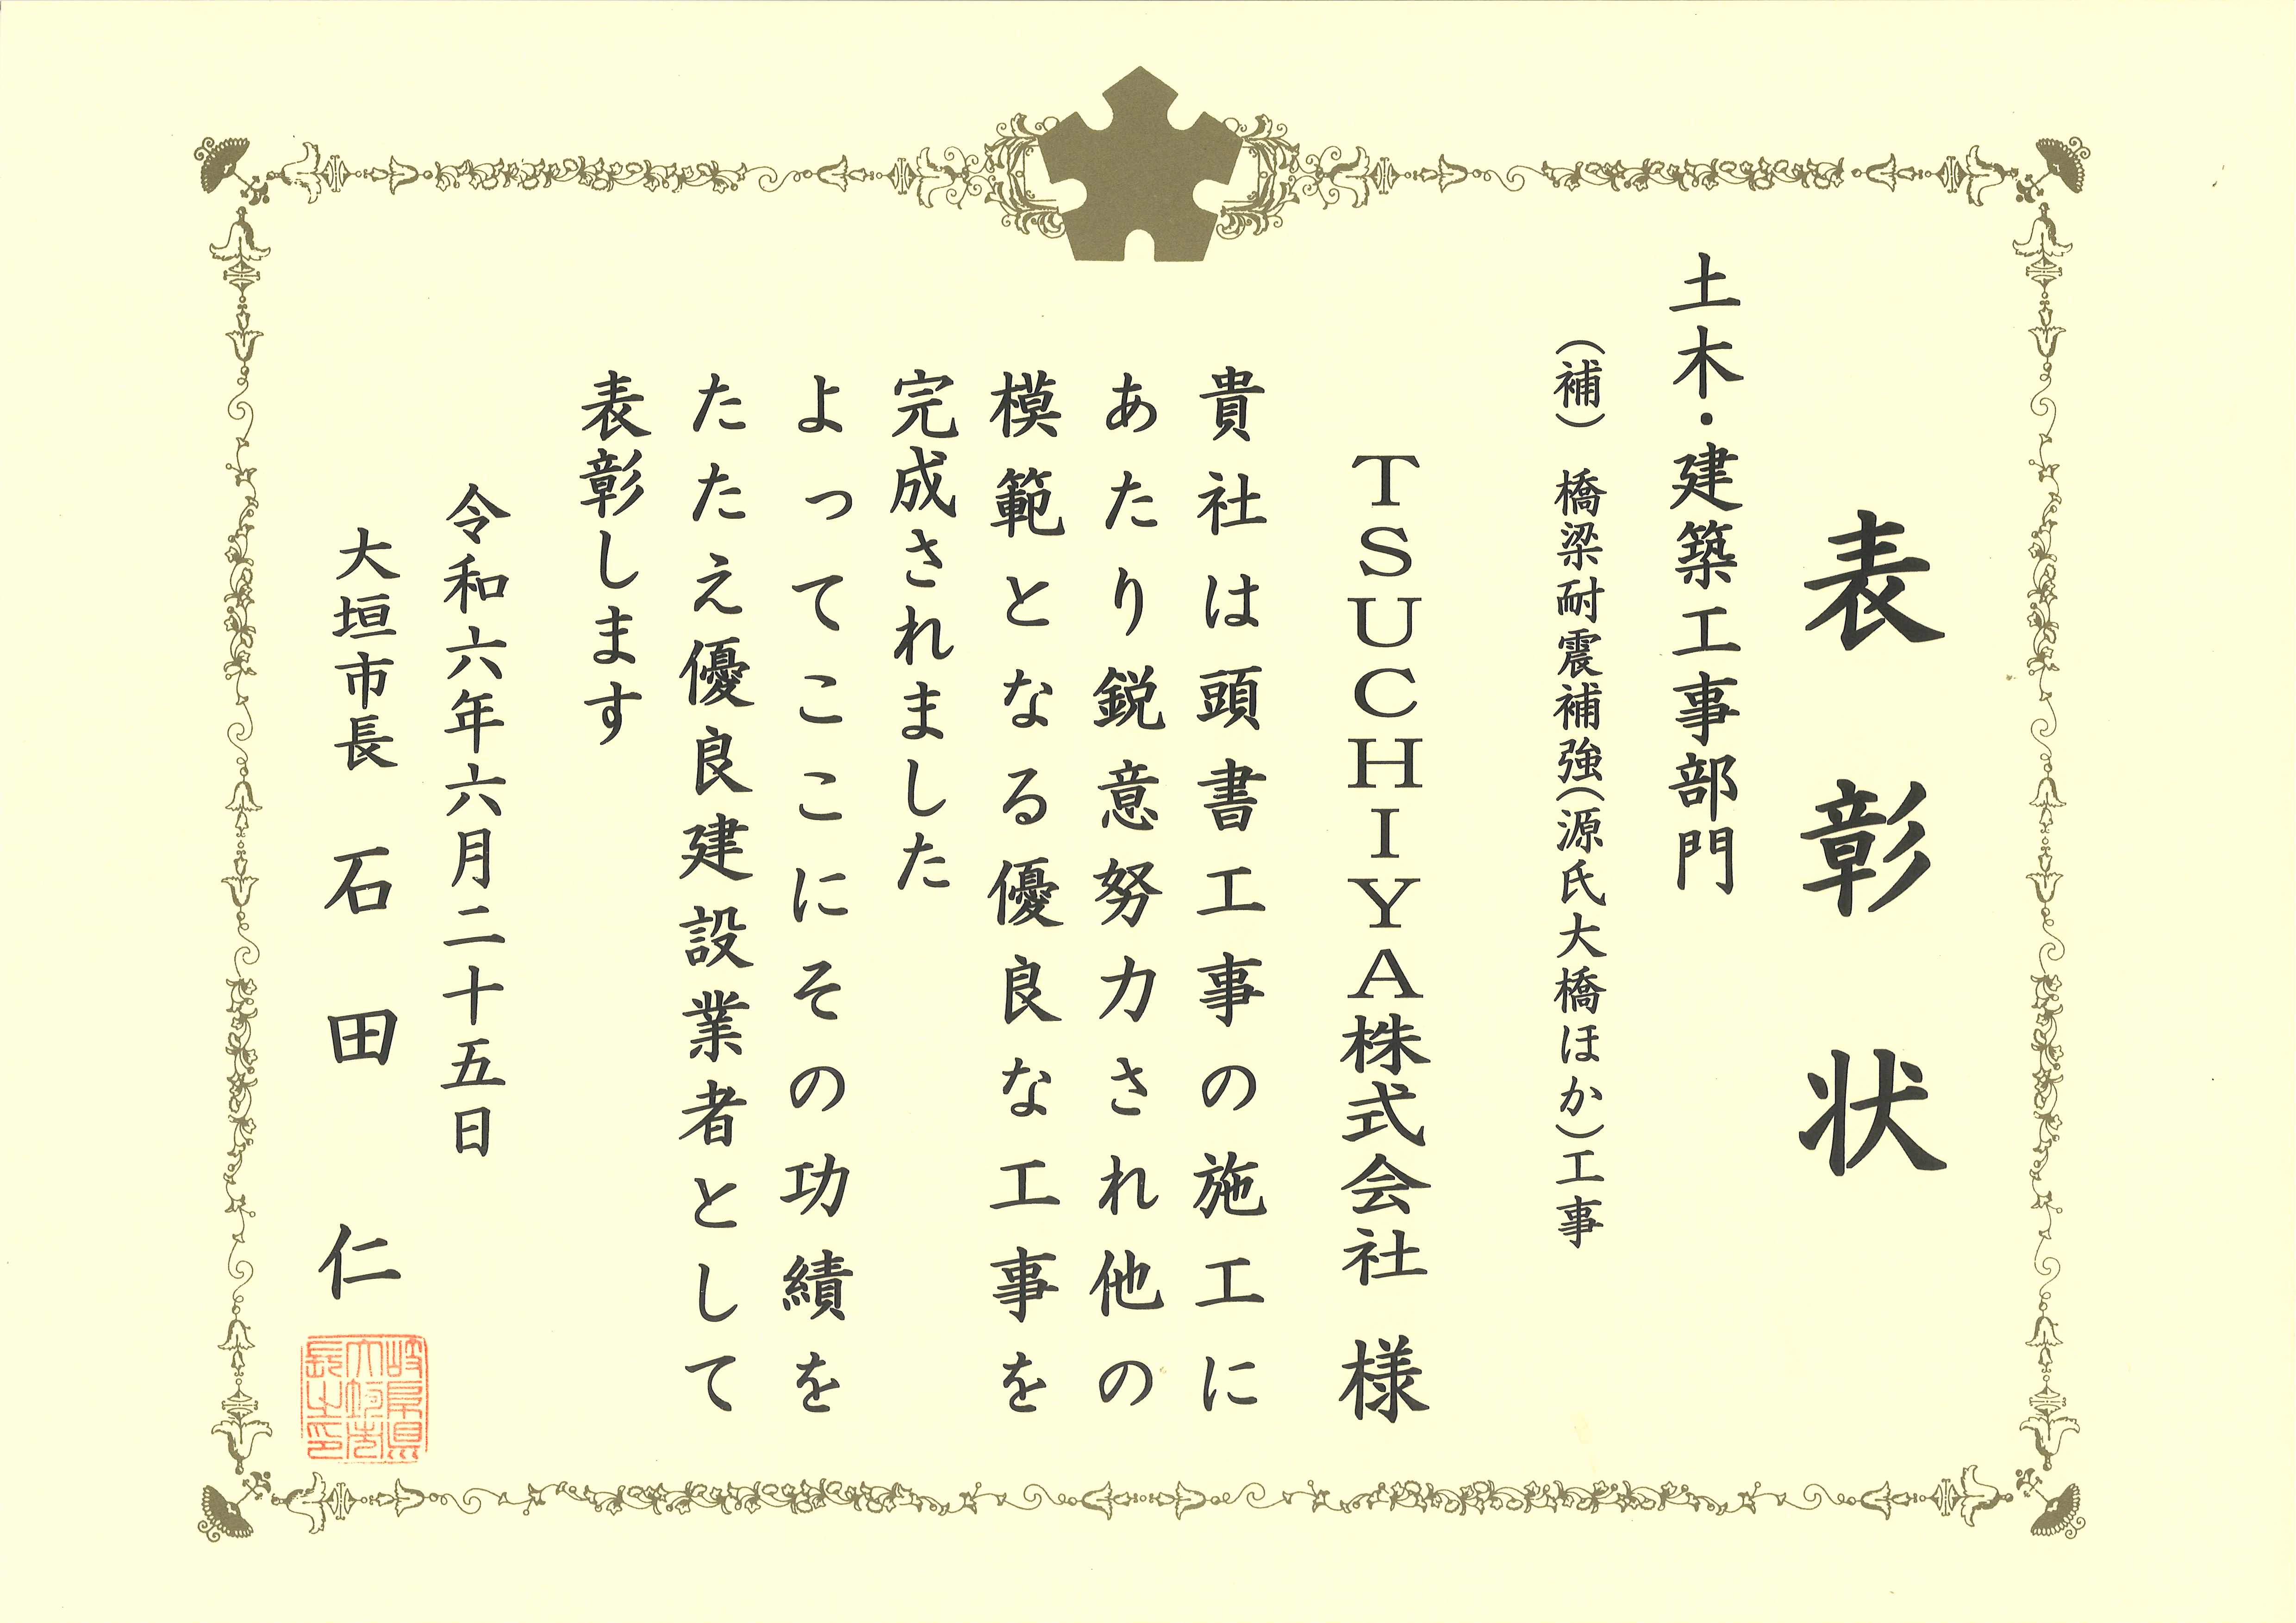 表彰状
土木・建築工事部門
（補）　橋梁耐震補強（源氏大橋ほか）工事
TSUCHIYA株式会社　様
貴社は頭書工事の施工に
あたり鋭意努力され他の
模範となる優良な工事を
完成されました
よってここにその功績を
たたえ優良建設業者として
表彰します
令和六年六月二十五日
大垣市長　石田　仁
岐阜県
大垣市
長之印